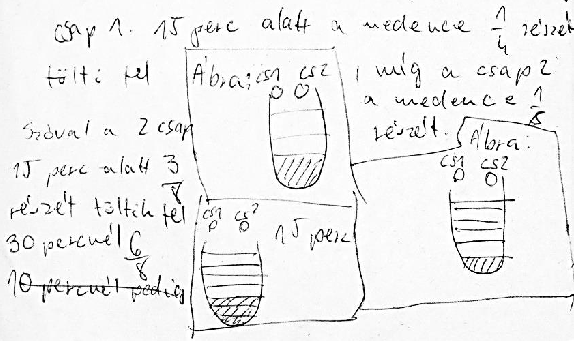 csap 1. 15 perc alatt a medence 1/4 részét
tölti fel
, míg a csap 2
a medence 1/8
részét.
Ábra:
cs1 cs2
Ábra:
cs1 cs2
Szóval a 2 csap
15 perc alatt 3/8
részét töltik fel
30 percnél 6/8
10 percnél pedig
cs1 cs2
15 perc